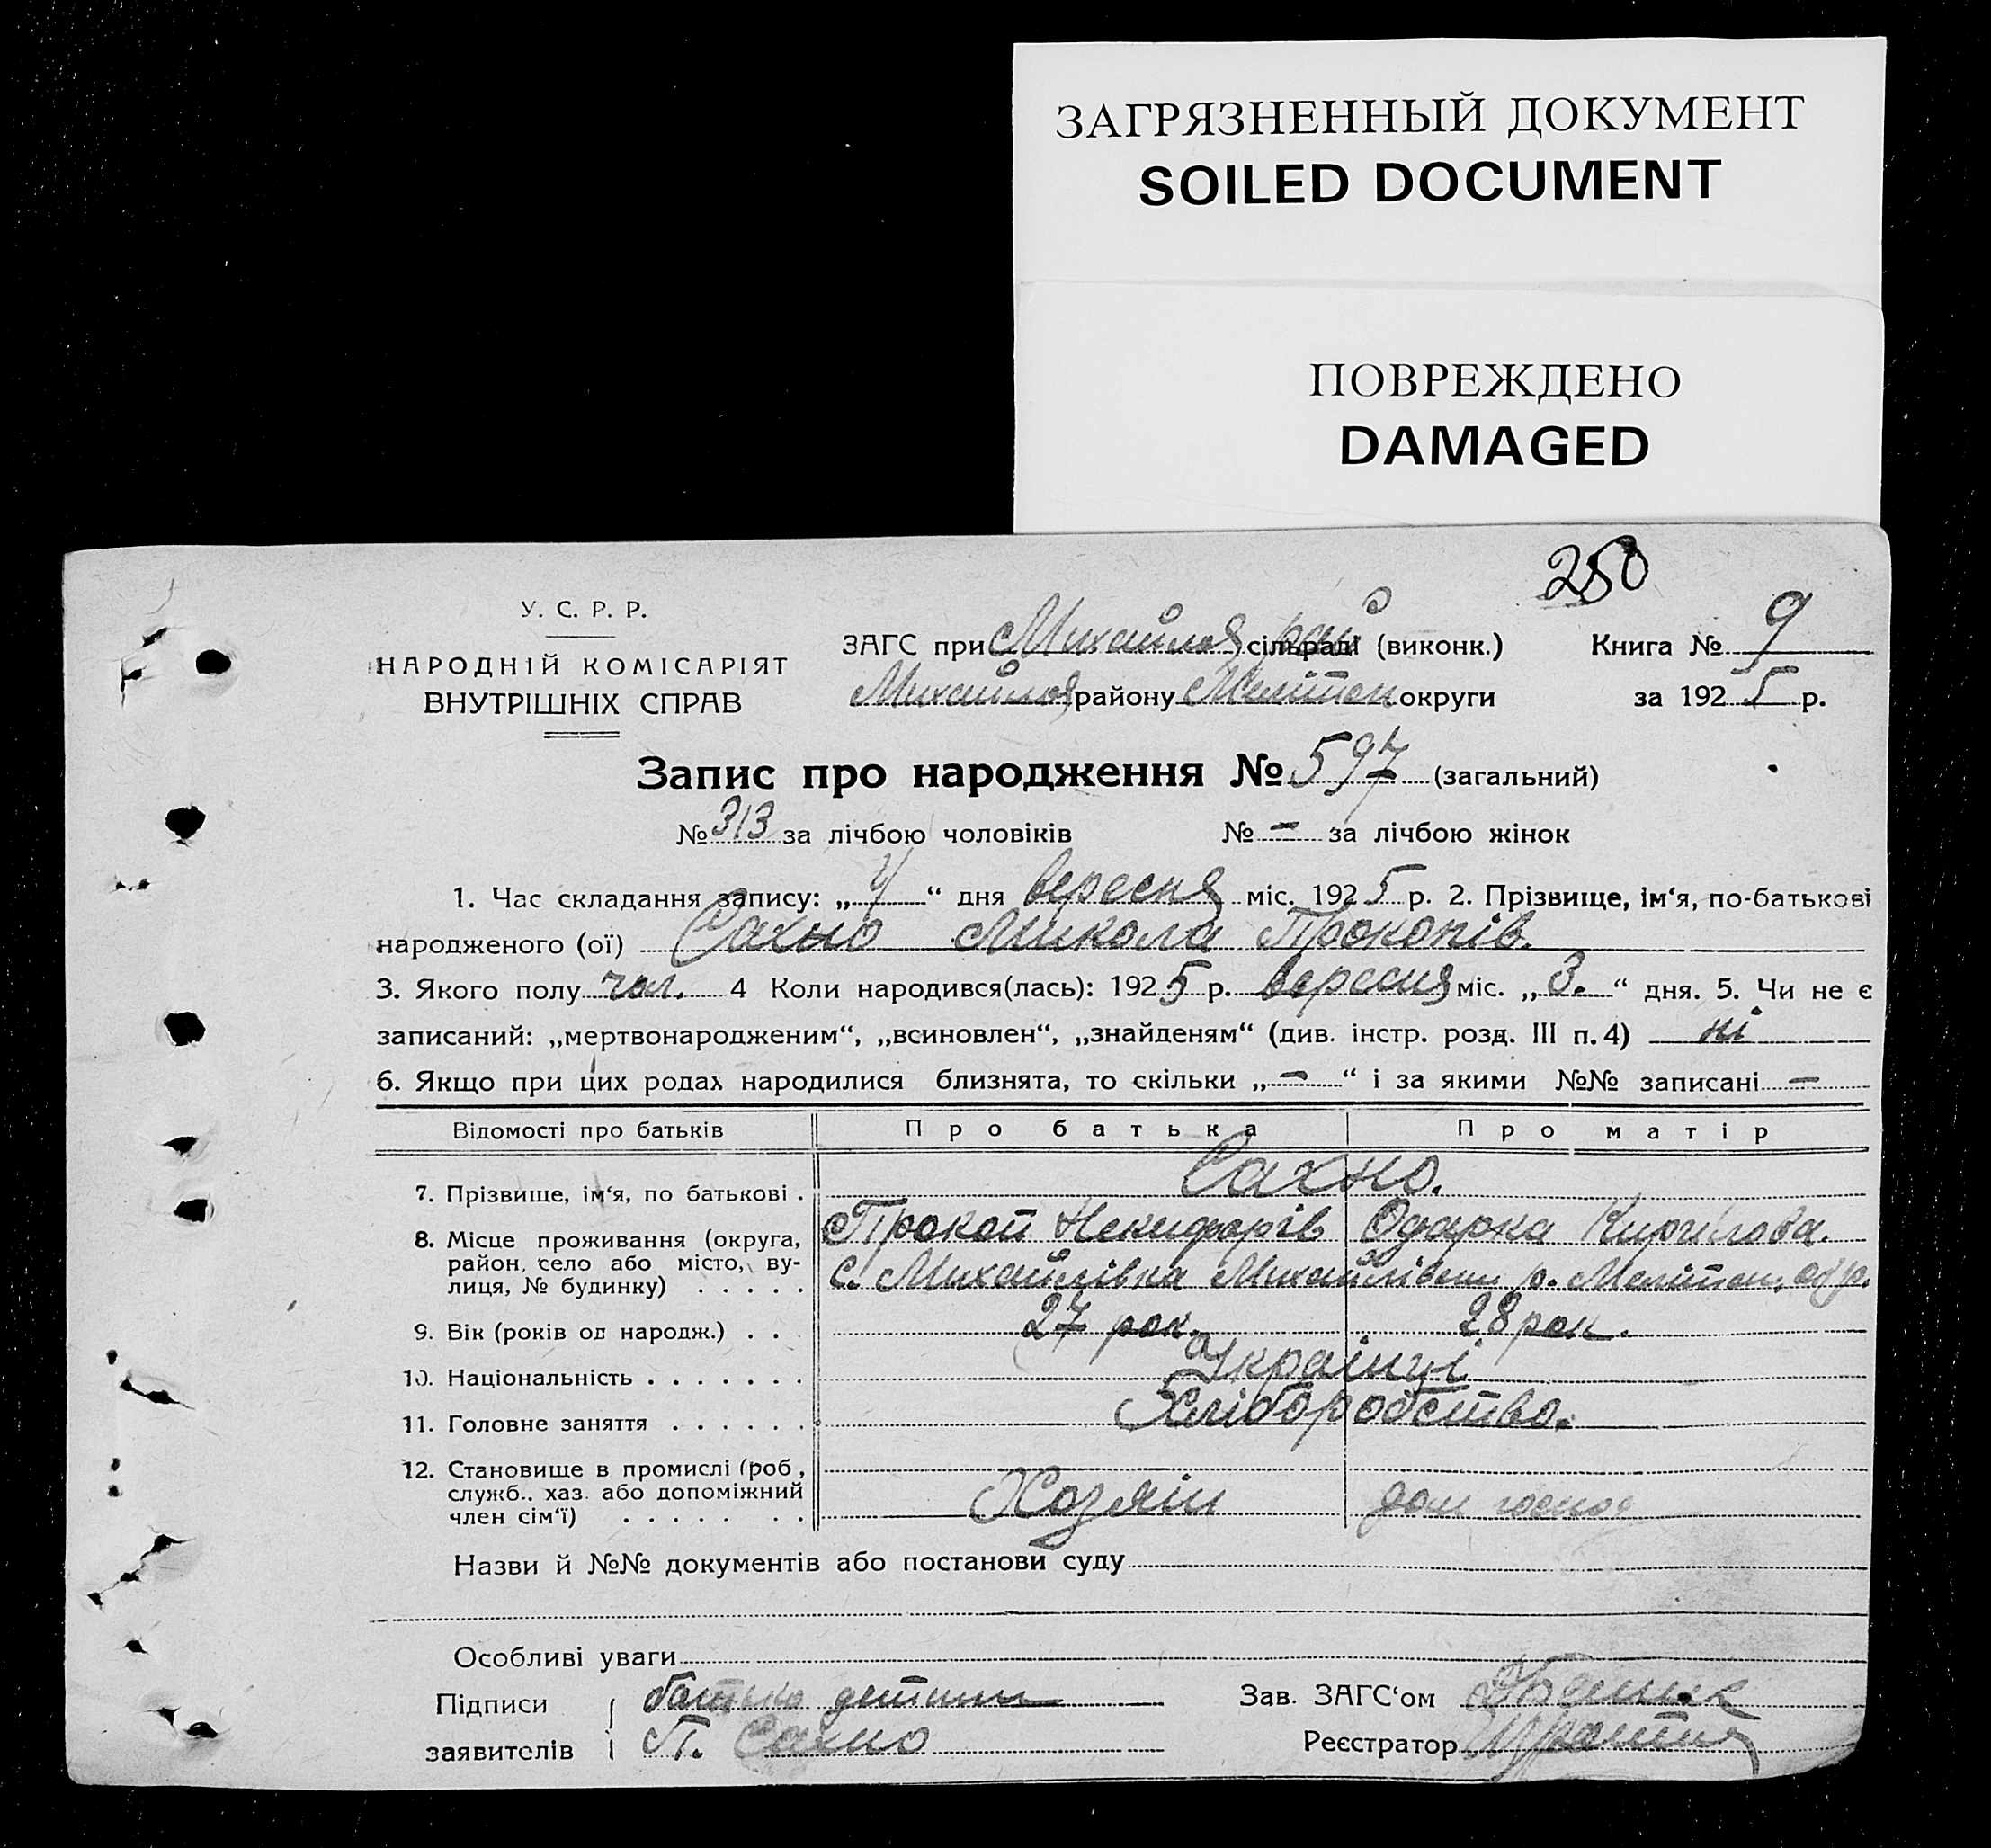 ЗАГРЯЗНЕННЫЙ ДОКУМЕНТ
SOILED DOCUMENT
ПОВРЕЖДЕНО
DAMAGED
250
У. С. Р. Р.
НАРОДНІЙ КОМІСАРІЯТ
ВНУТРІШНІХ СПРАВ
ЗАГС при Михайлов сільраді рай (виконк.) Книга № 9
Михайлов району Мелітоп округи за 1925 р.
Запис про народження № 597 (загальний)
№ 313 за лічбою чоловіків № – за лічбою жінок
1. Час складання запису: „ “ дня вересня міс. 1925 р. 2. Прізвище, ім‘я, по-батькові
народженого (ої) Сахно Микола Прокопів.
3. Якого полу чол. 4 Коли народився(лась): 1925 р. вересня міс. „3.“ дня. 5. Чи не є
записаний: „мертвонародженим“, „всиновлен“, „знайденям“ (див. інстр. розд. III п. 4) ні
6. Якщо при цих родах народилися близнята, то скільки „–“ і за якими №№ записані –
Відомості про батьків Про батька Про матір
7. Прізвище, ім‘я, по батькові . Сахно.
Прокоп Некифорів Одарка Кирилова.
8. Місце проживання (округа,
район, село або місто, ву-
лиця, № будинку) . . . . . с. Михайлівка р. Мелітоп. окр.
9. Вік (років од народж.) . . . 27 рок. 28 рок.
10. Національність . . . . . . . Українці
11. Головне заняття . . . . . . Хліборобство.
12. Становище в промислі (роб.,
служб., хаз. або допоміжний
член сім‘ї) . . . . . . . Хозяін дом госпо
Назви й №№ документів або постанови суду
Особливі уваги
Підписи батько дитини Зав. ЗАГС‘ом
заявителів П. Сахно Реєстратор